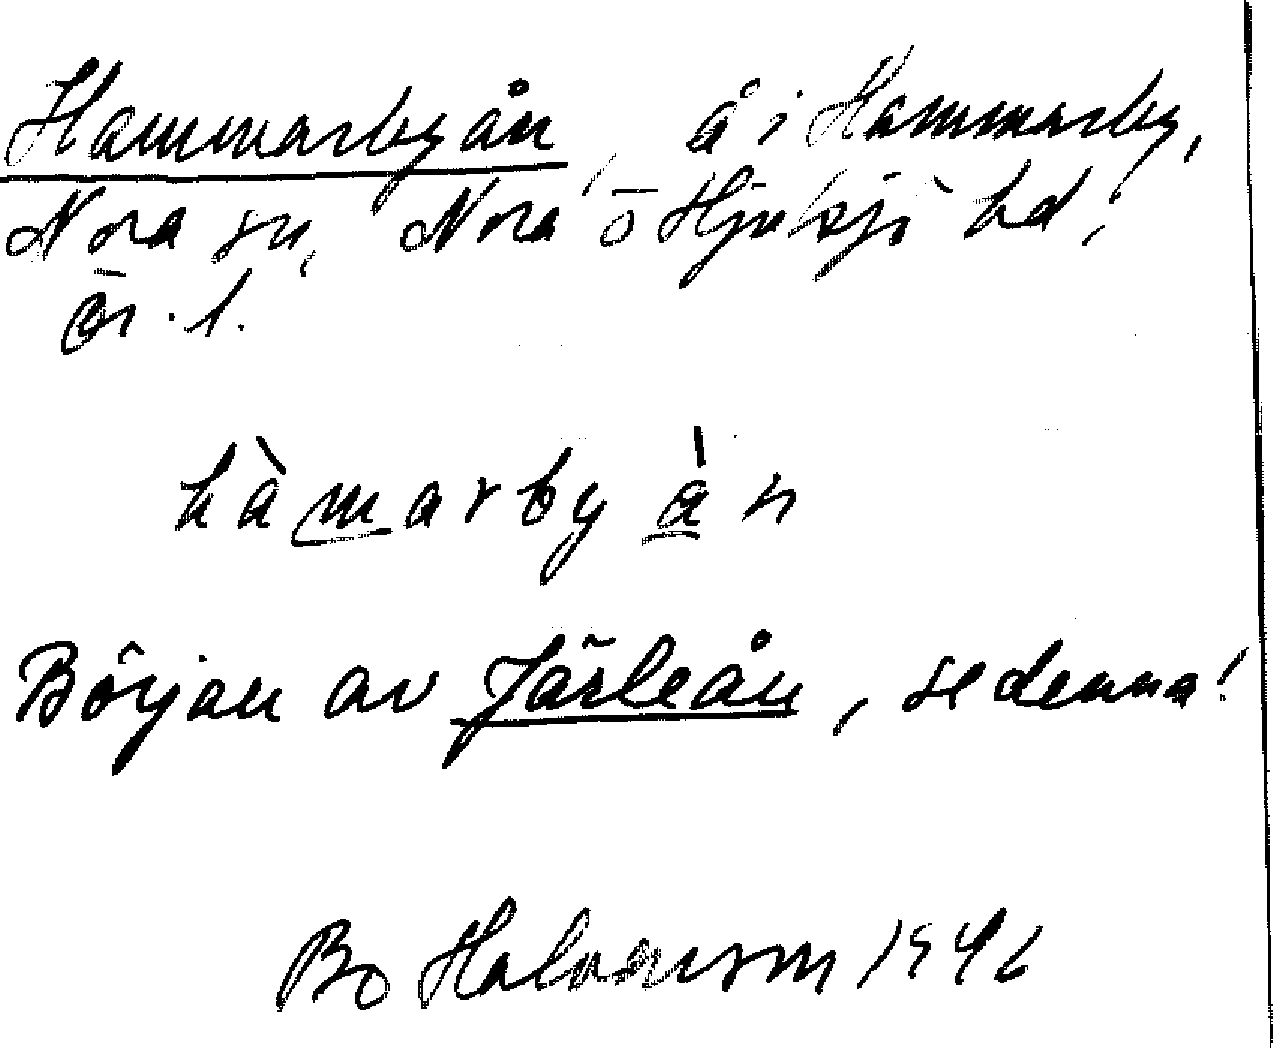 Hammarbyån, å i Hammarby,
Nora sn, Nora o Hjulsjö hd,
Ör. l.
hàmarbyàn
Början av Järleån, se denna!
Bo 1946